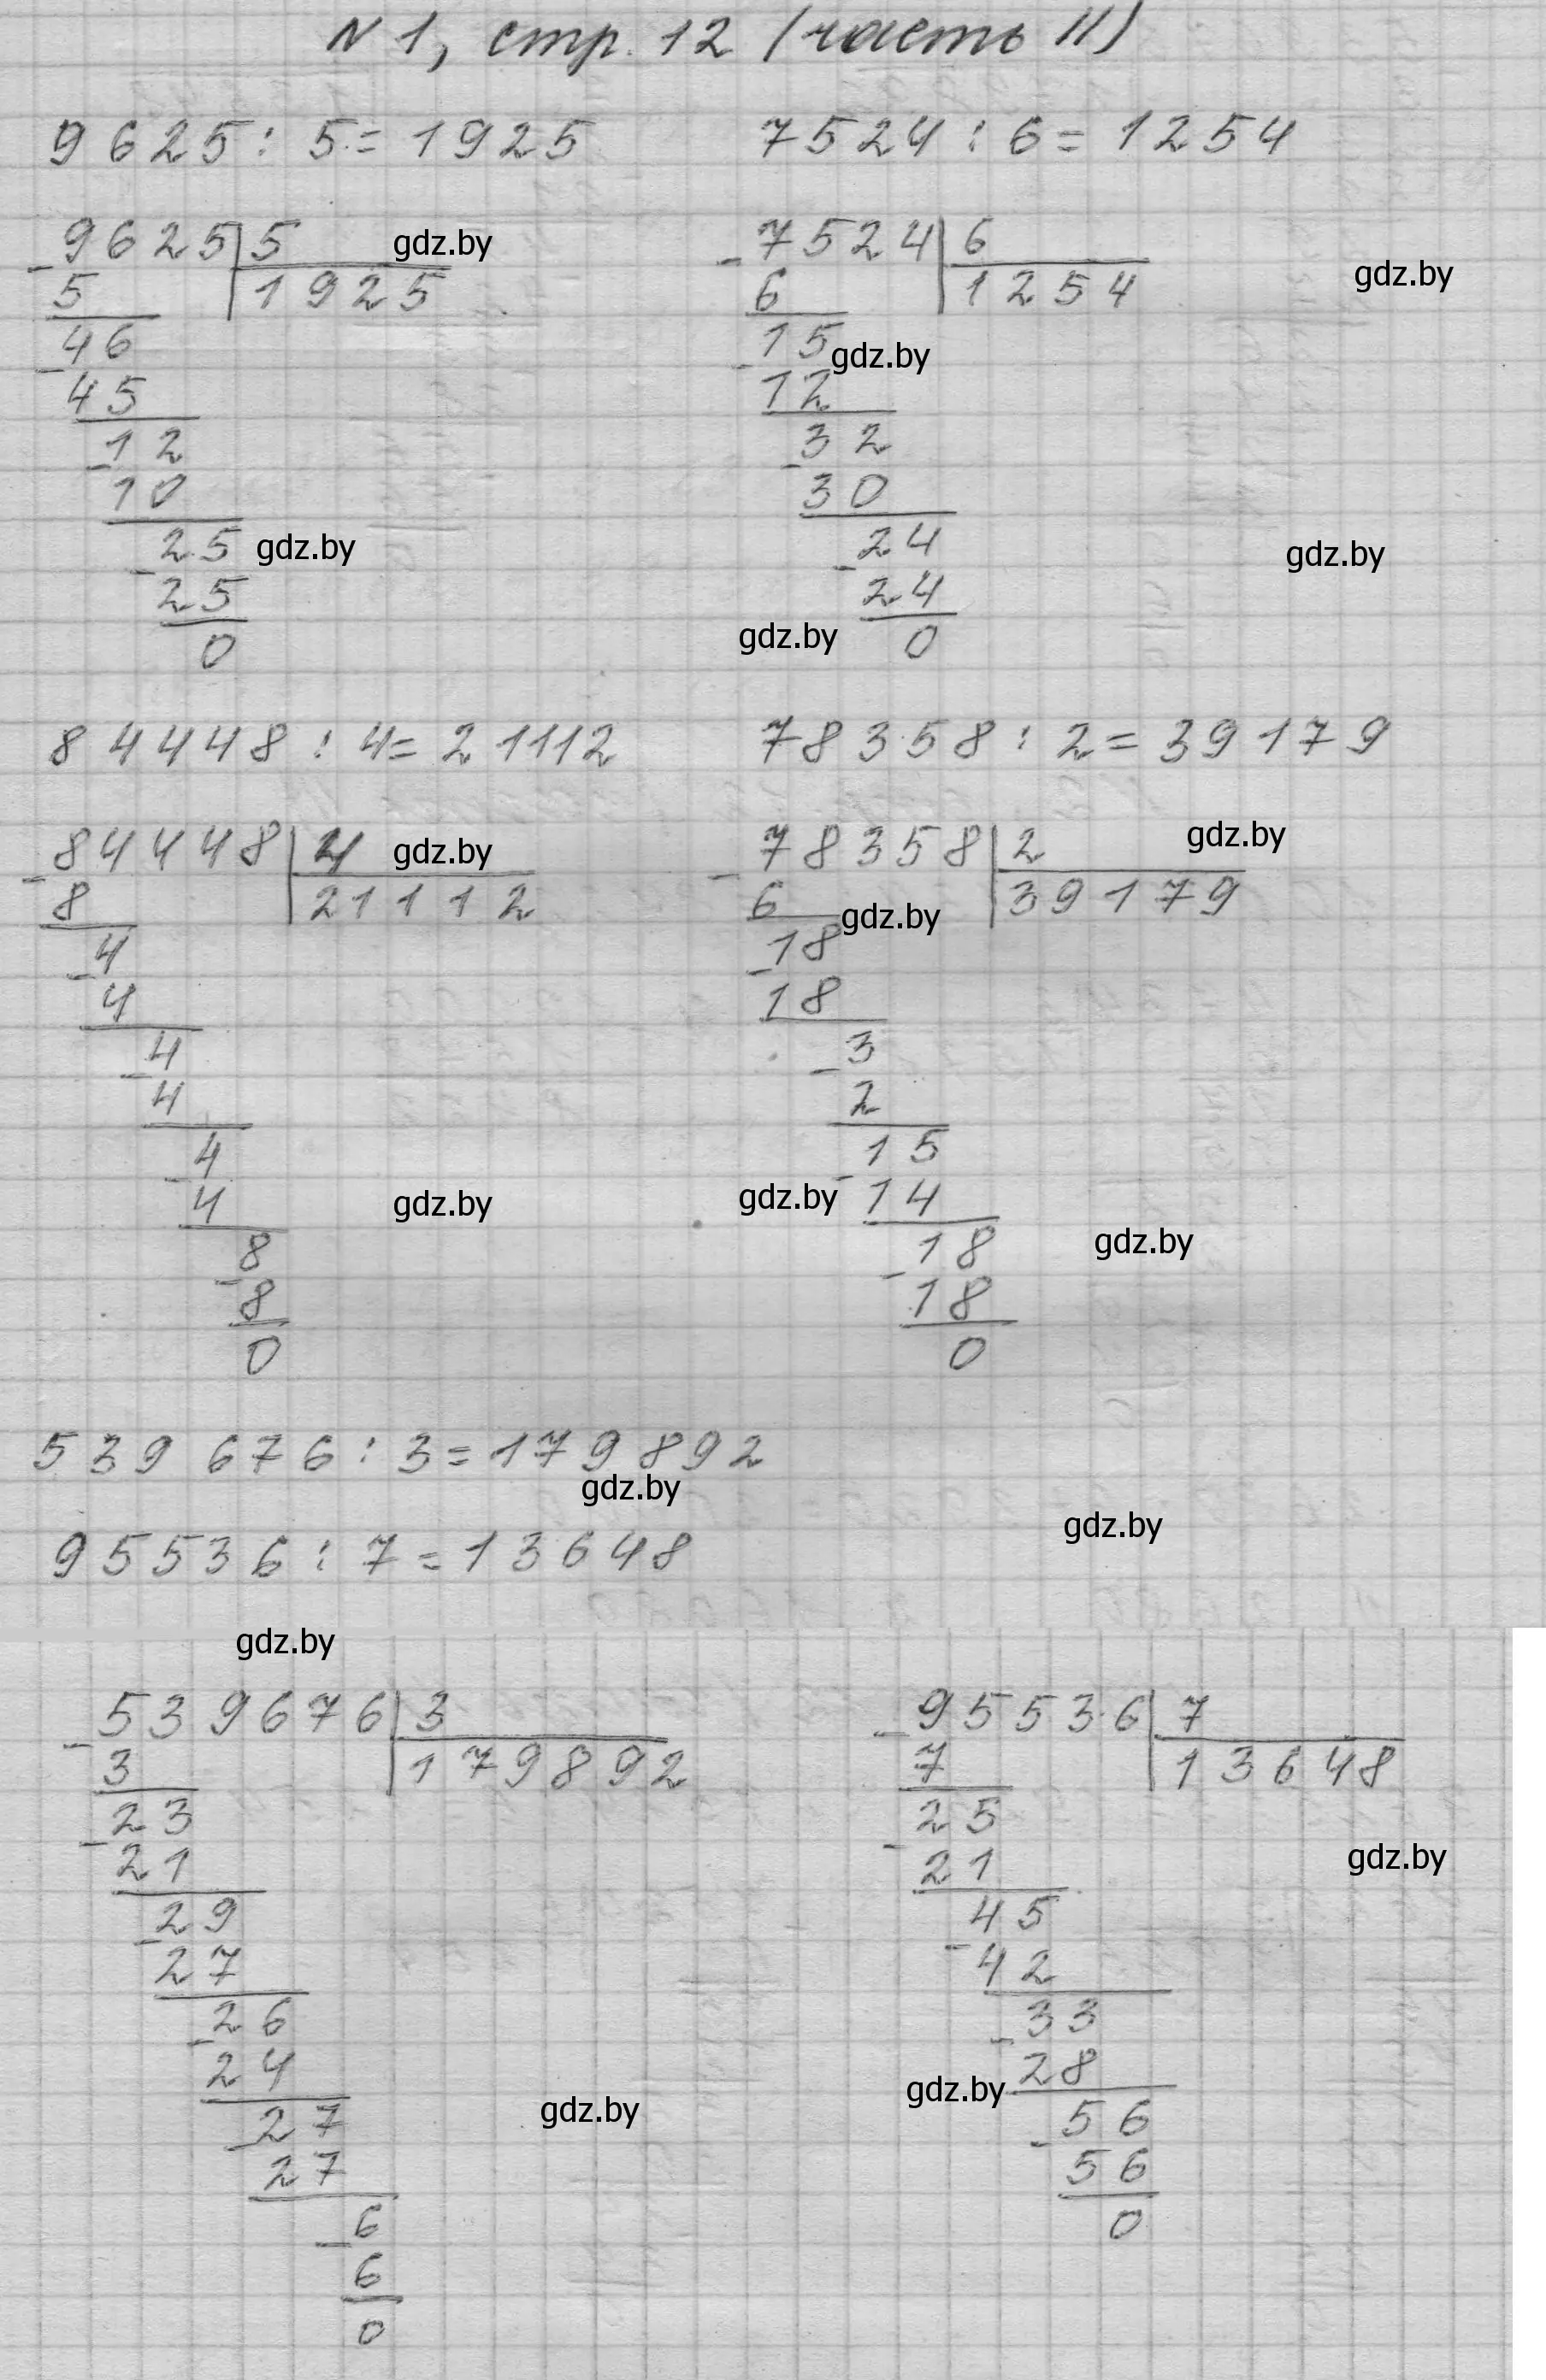 N 1, стр. 12 (часть II)
9625 : 5 = 1925
7524 : 6 = 1254
9625 5
gdz.by
5 1925
46
45
12
10
25
gdz.by
25
0
7524 6
gdz.by
6 1254
15
gdz.by
12
32
30
24
gdz.by
24
gdz.by
0
84448 : 4 = 21112
78358 : 2 = 39179
84448 4
gdz.by
8 21112
4
4
4
4
4
4
gdz.by
8
8
0
78358 2
gdz.by
6 39179
gdz.by
18
18
3
2
15
14
gdz.by
18
gdz.by
18
0
539 676 : 3 = 179 892
gdz.by
gdz.by
95536 : 7 = 13648
gdz.by
539676 3
3 179892
23
21
29
27
26
24
27
gdz.by
27
6
6
0
95536 7
7 13648
25
21
gdz.by
45
42
33
28
gdz.by
56
56
0